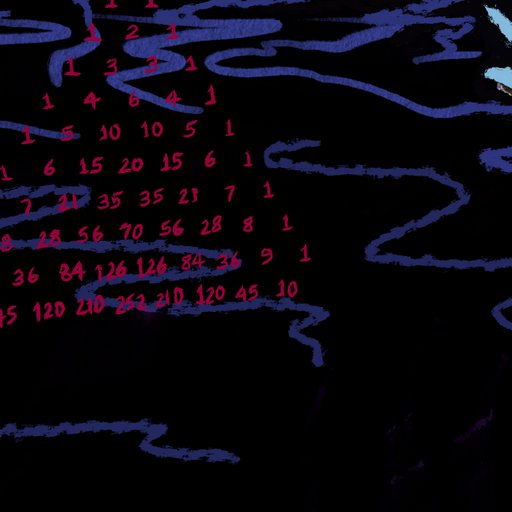 1 1
1 2 1
1 3 3 1
1 4 6 4 1
1 5 10 10 5 1
1 6 15 20 15 6 1
7 21 35 35 21 7 1
8 28 56 70 56 28 8 1
36 84 126 126 84 36 9 1
45 120 210 252 210 120 45 10